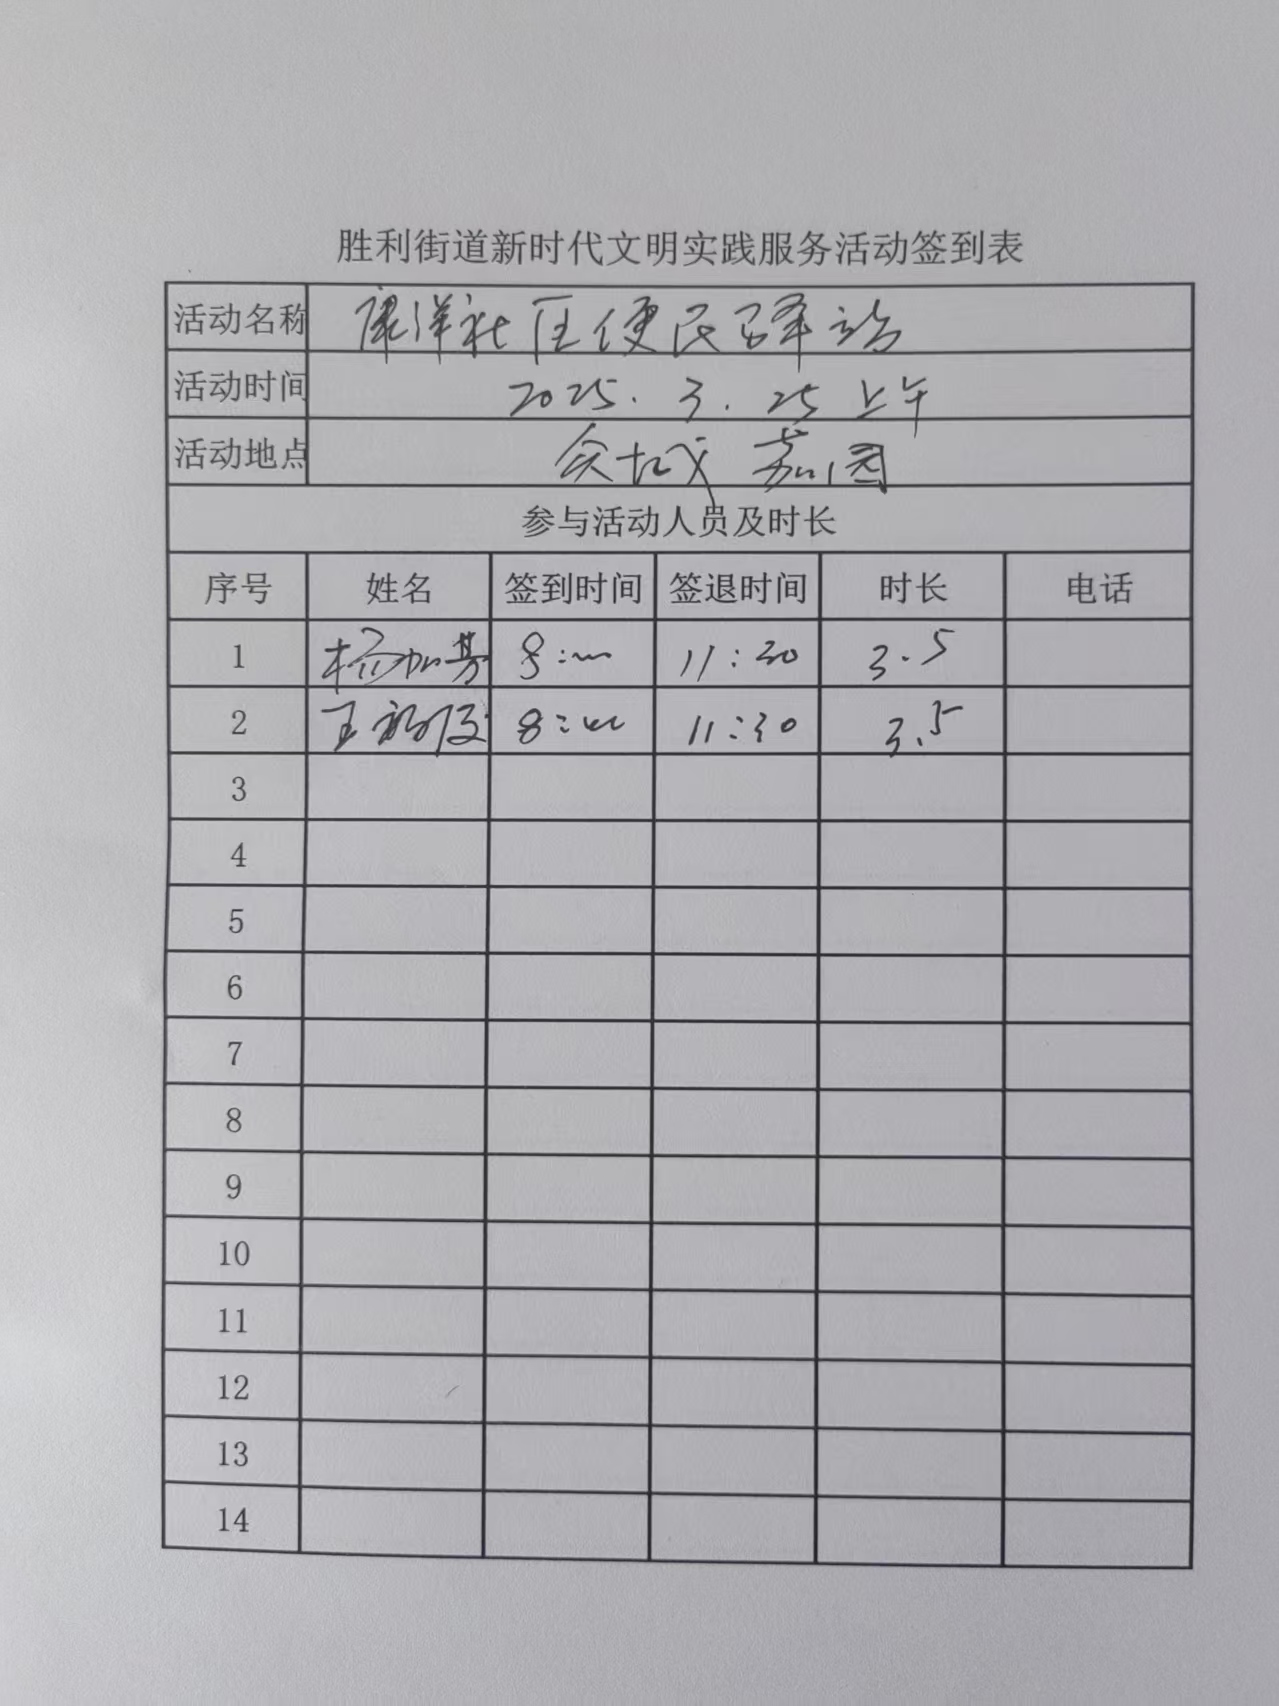 胜利街道新时代文明实践服务活动签到表
活动名称 康洋社区便民驿站
活动时间 2025.3.25 上午
活动地点 众城 嘉园
参与活动人员及时长
序号 姓名 签到时间 签退时间 时长 电话
1 杨加芳 8:00 11:30 3.5
2 王 8:00 11:30 3.5
3
4
5
6
7
8
9
10
11
12
13
14